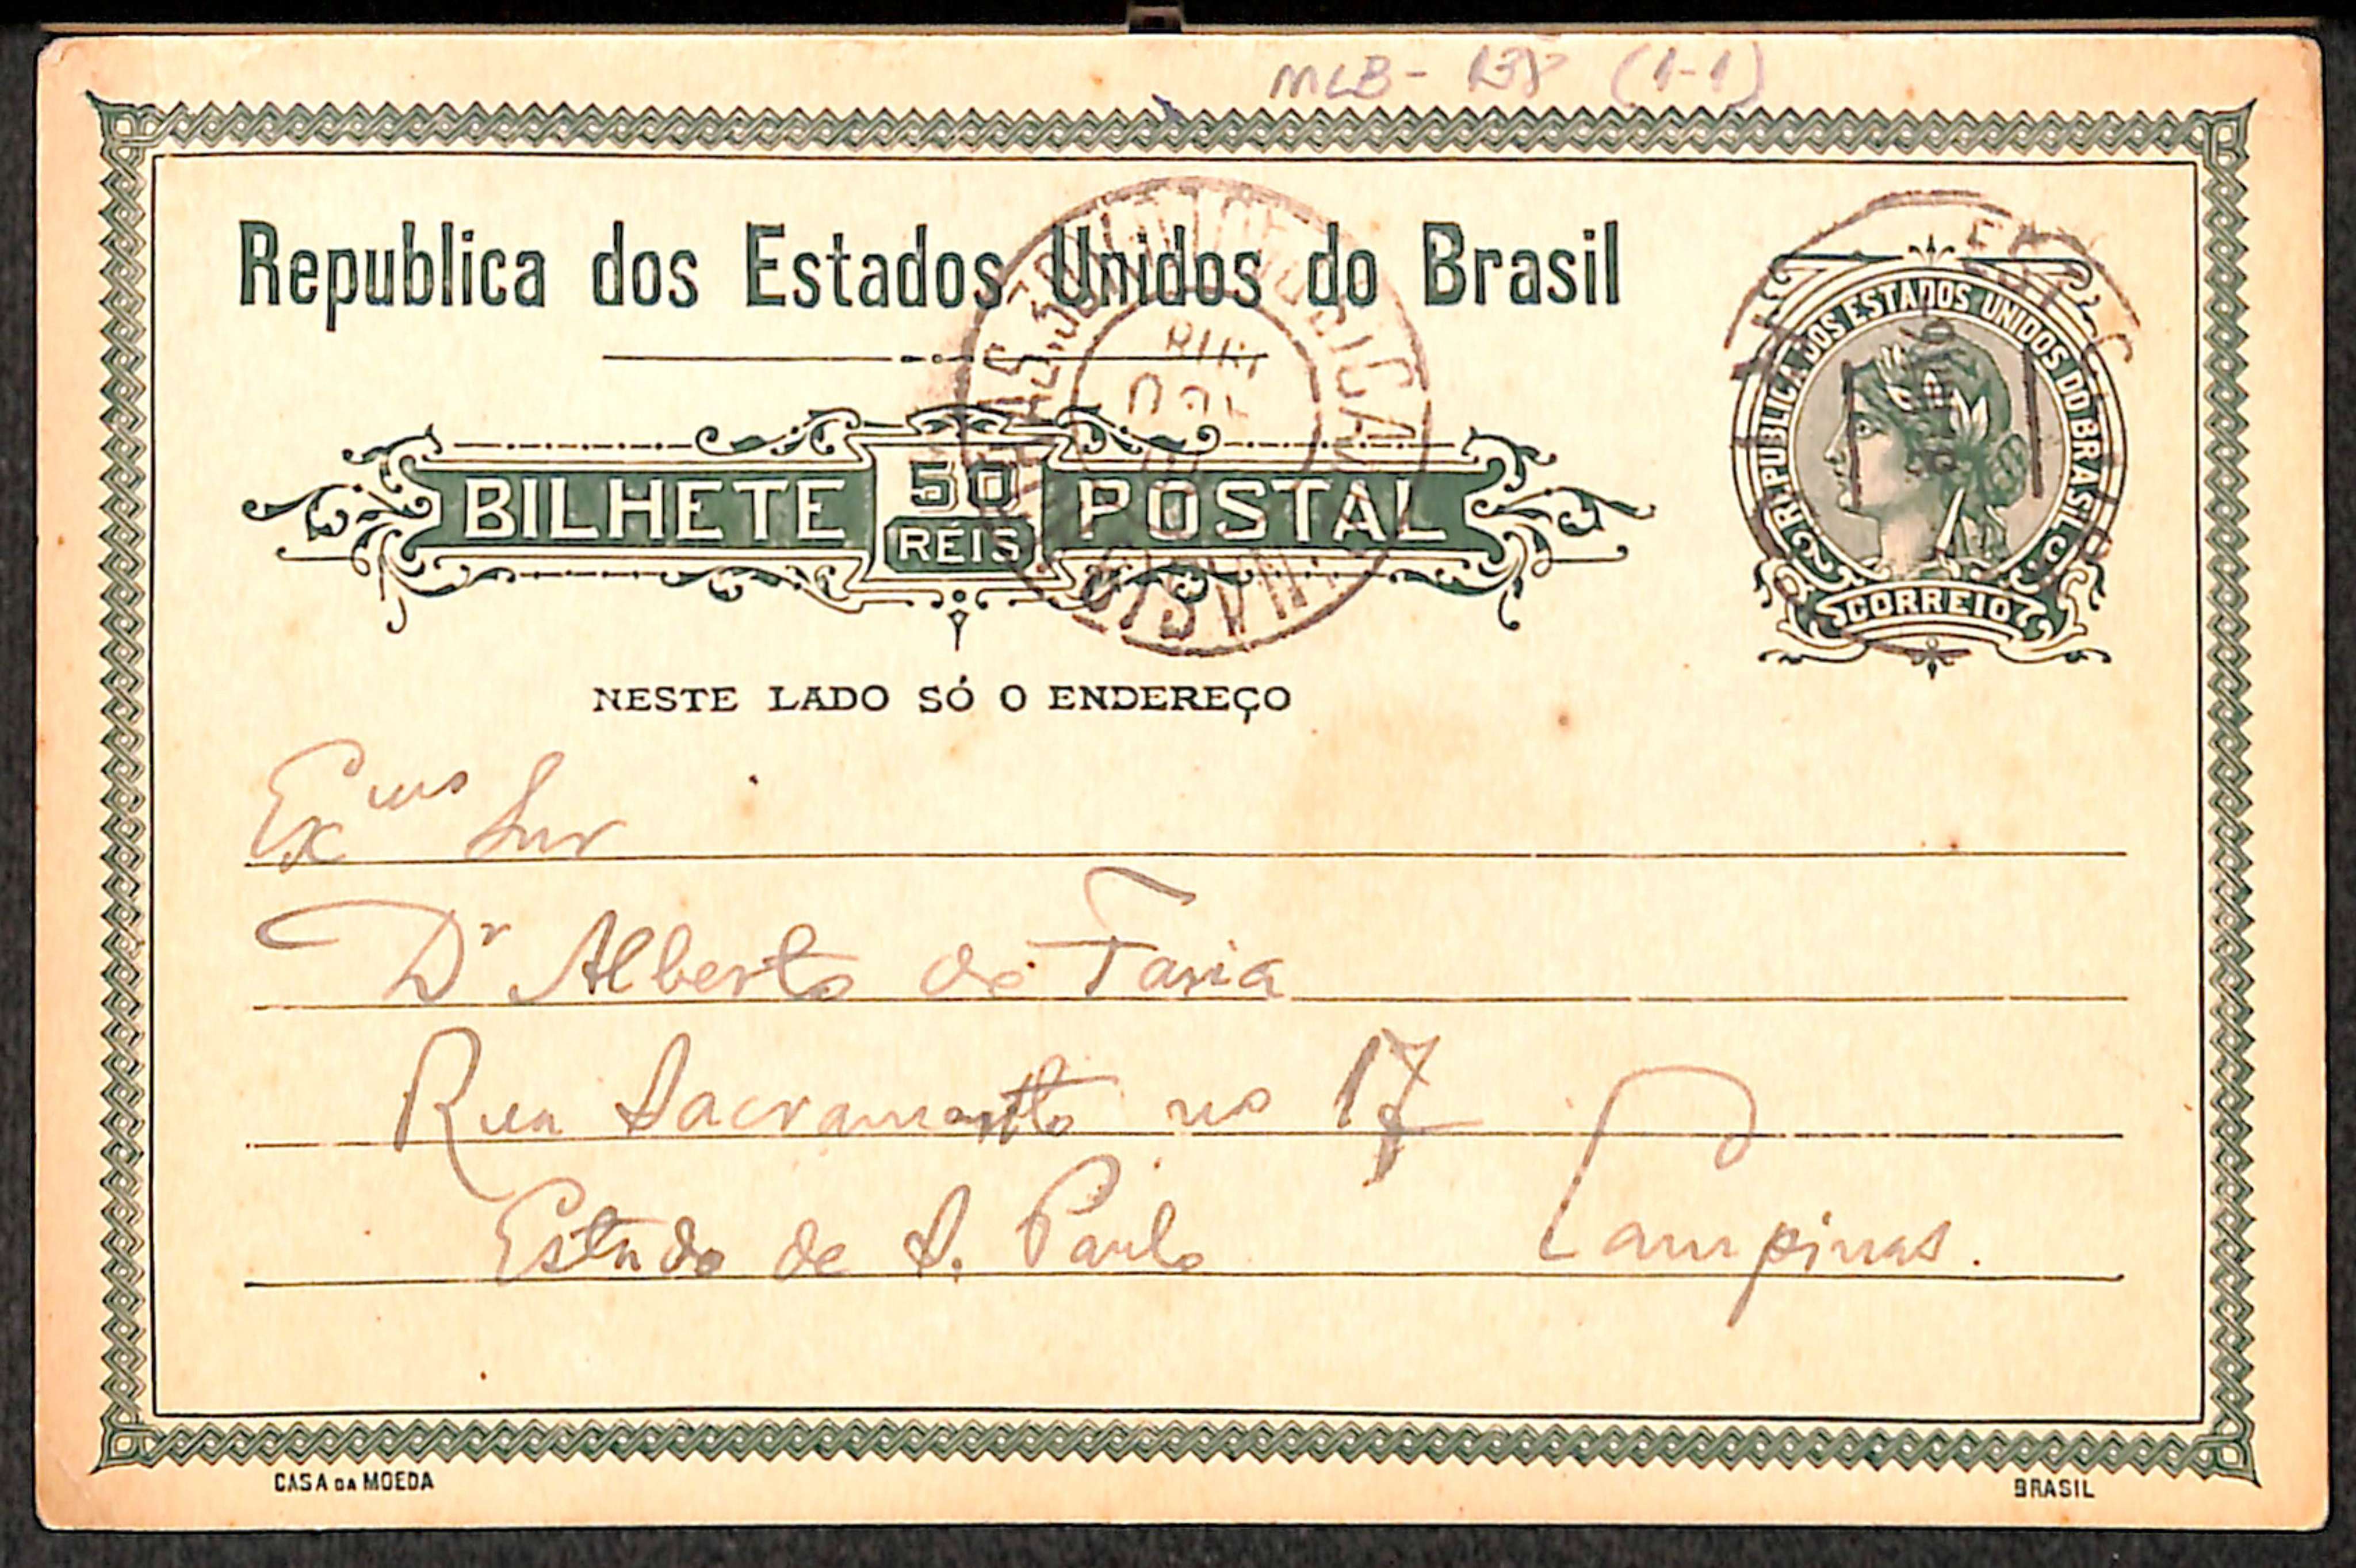 MLB - 138 (1-1)
Republica dos Estados Unidos do Brasil
BILHETE 50 RÉIS POSTAL
REPUBLICA DOS ESTADOS UNIDOS DO BRASIL
CORREIO
NESTE LADO SÓ O ENDEREÇO
Exmo Snr
Dr Alberto de Faria
Rua Sacramento no 17
Estado de S. Paulo Campinas.
CASA DA MOEDA
BRASIL